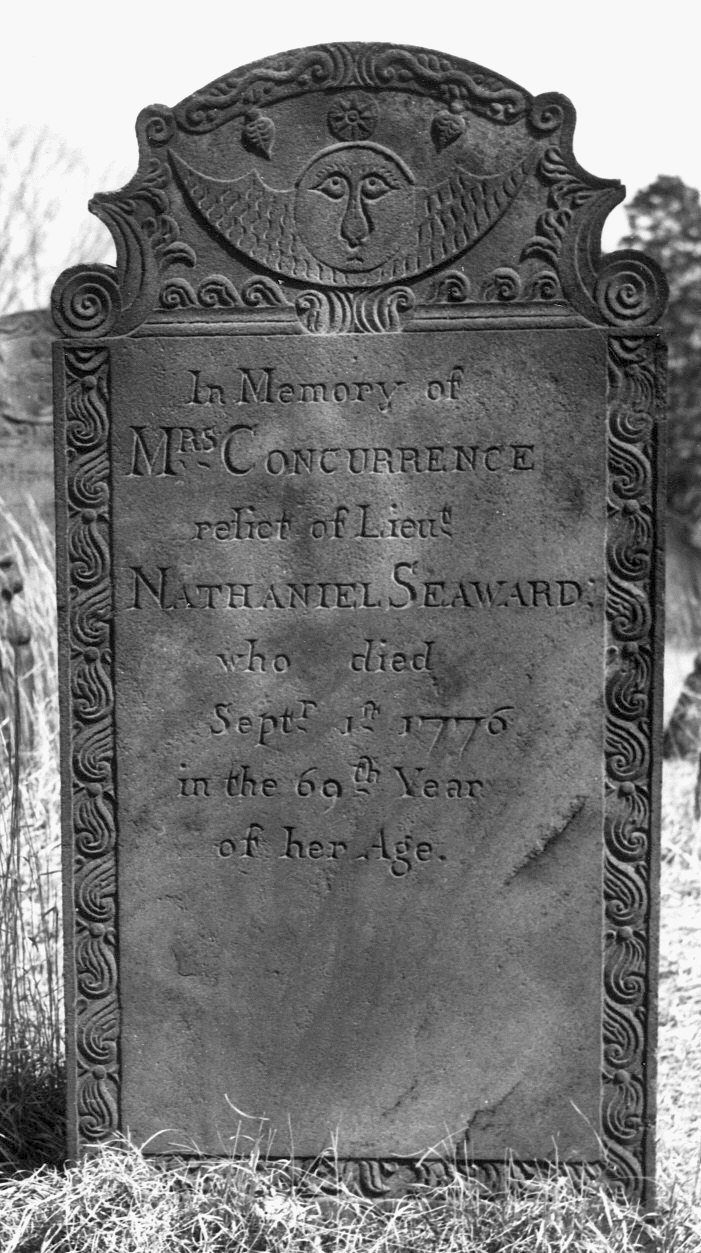 In Memory of
Mrs Concurrence
relict of Lieut
Nathaniel Seaward,
who died
Septr 1st 1776
in the 69th Year
of her Age.